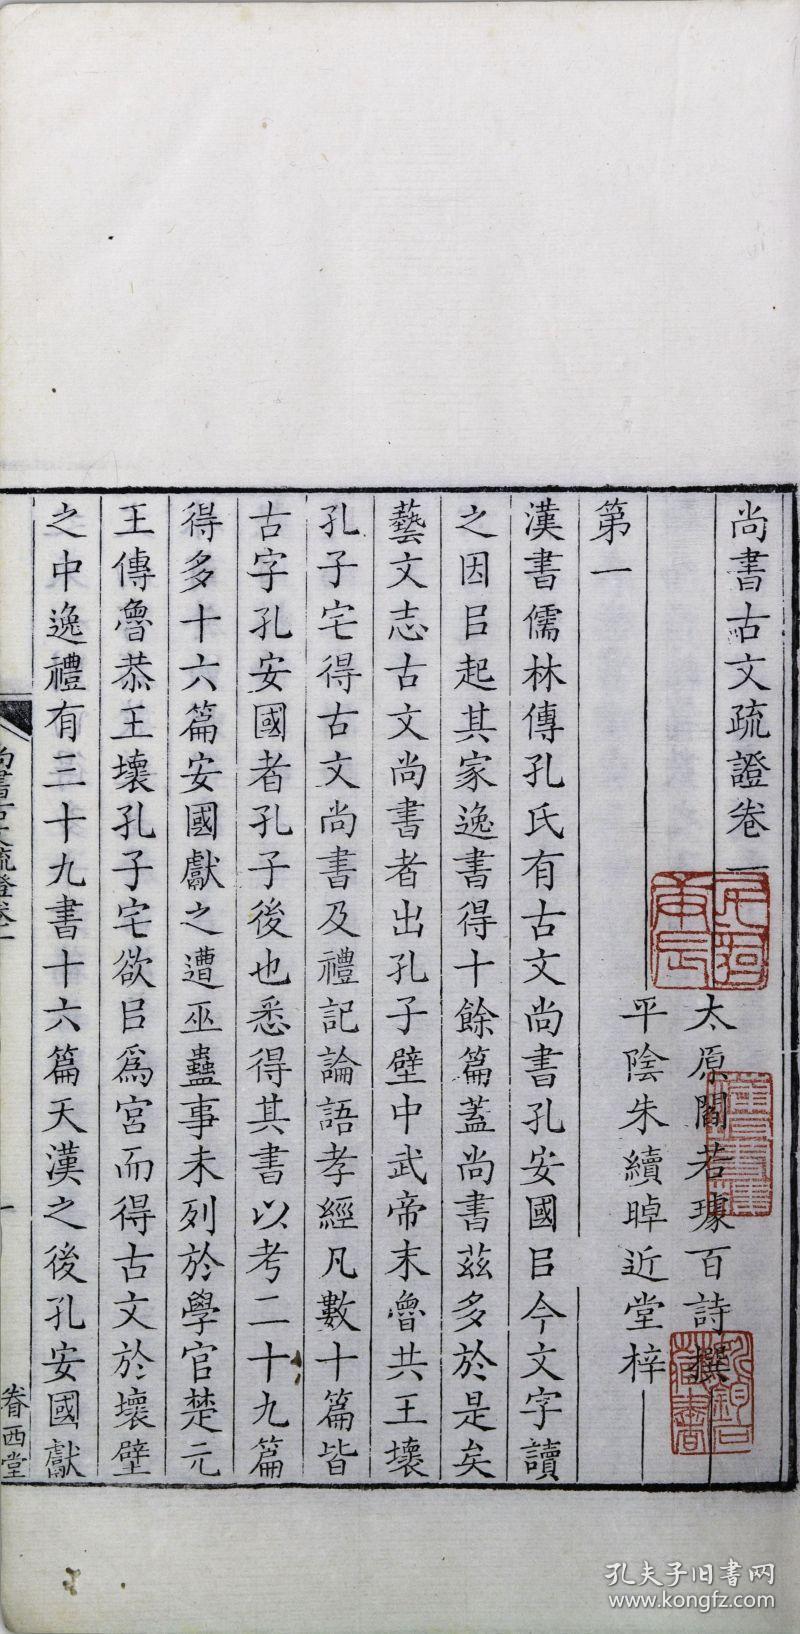 尚書古文疏證卷一
太原閻若璩百詩撰
平陰朱續晫近堂梓
第一
漢書儒林傳孔氏有古文尚書孔安國㠯今文字讀
之因㠯起其家逸書得十餘篇蓋尚書茲多於是矣
藝文志古文尚書者出孔子壁中武帝末魯共王壞
孔子宅得古文尚書及禮記論語孝經凡數十篇皆
古字孔安國者孔子後也悉得其書以考二十九篇
得多十六篇安國獻之遭巫蠱事未列於學官楚元
王傳魯恭王壞孔子宅欲㠯爲宮而得古文於壞壁
之中逸禮有三十九書十六篇天漢之後孔安國獻
尚書古文疏證卷一
一
眷西堂
孔夫子旧书网
www.kongfz.com